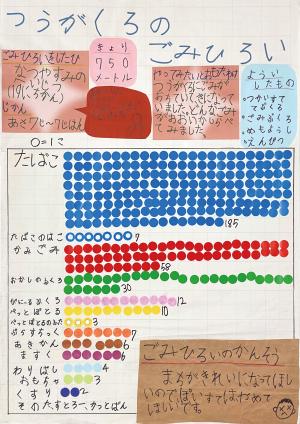 つうがくろの
ごみひろい
ごみひろいをしたひ
なつやすみの
(19にちかん)
じかん
あさ7じ〜7じはん
きょり
750
メートル
やってみたいとおもったわけ
つうがくろにごみが
おちていてきになって
いました。どんなごみ
がおおいかしらべ
てみました。
ようい
したもの
つかいすて
てぶくろ
ごみぶくろ
めもようし
えんぴつ
○=1こ
たばこ
185
たばこのはこ 7
かみごみ
58
おかしのふくろ
30
びにーるぶくろ 12
ぺっとぼとる 10
ぺっとぼとるのふた 3
ぷらすちっく 7
あきかん 6
ますく 6
わりばし 4
おもちゃ 3
くすり 2
そのた、すとろー、かっとばん
ごみひろいのかんそう
まちがきれいになってほし
いのでぽいすてはやめて
ほしいです。